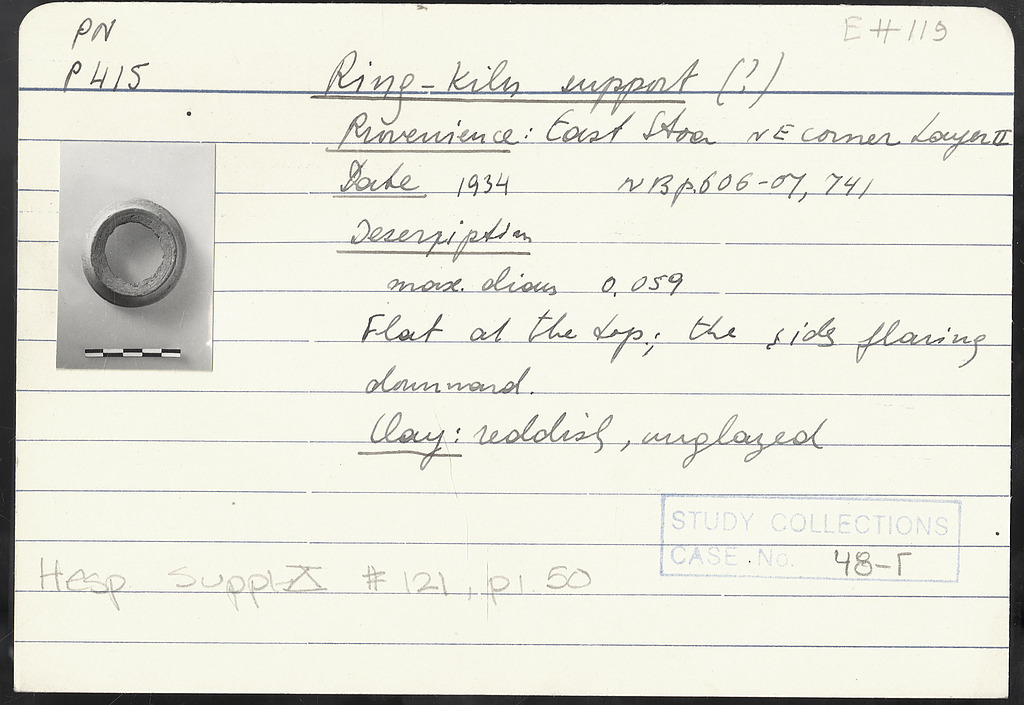 PN
E#119
P415
Ring-Kiln support (?)
Provenience: East Stoa NE corner Layer II
Date 1934 NB p.606-07, 741
Description
max. diam 0.059
Flat at the top; the side flaring
downward.
Clay: reddish, unglazed
STUDY COLLECTIONS
CASE No. 48-Γ
Hesp Suppl X #121, pl. 50